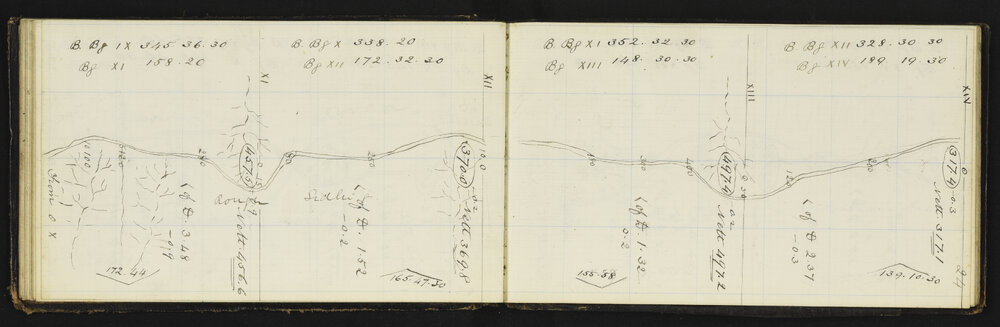 B. Bg IX 345 36.30
Bg XI 158.20
B. Bg X 338.20
Bg XII 172.32.30
B. Bg XI 352.32.30
Bg XIII 148.30.30
B. Bg XII 328.30 30
Bg XIV 189 19.30
XI
XII
XIII
XIV
From O X
100
200
457.5
80
250
370.0
10.0
-0.2
Nett 369.8
< of D. 3.48
-0.9
Nett 456.6
< of D. 1.52
-0.2
172.44
165.47.30
400
497.4
0.2
Nett 497.2
120
200
317.4
-0.3
Nett 317.1
< of D. 1.32
0.2
< of D. 2.37
-0.3
155.58
139.10.30
24